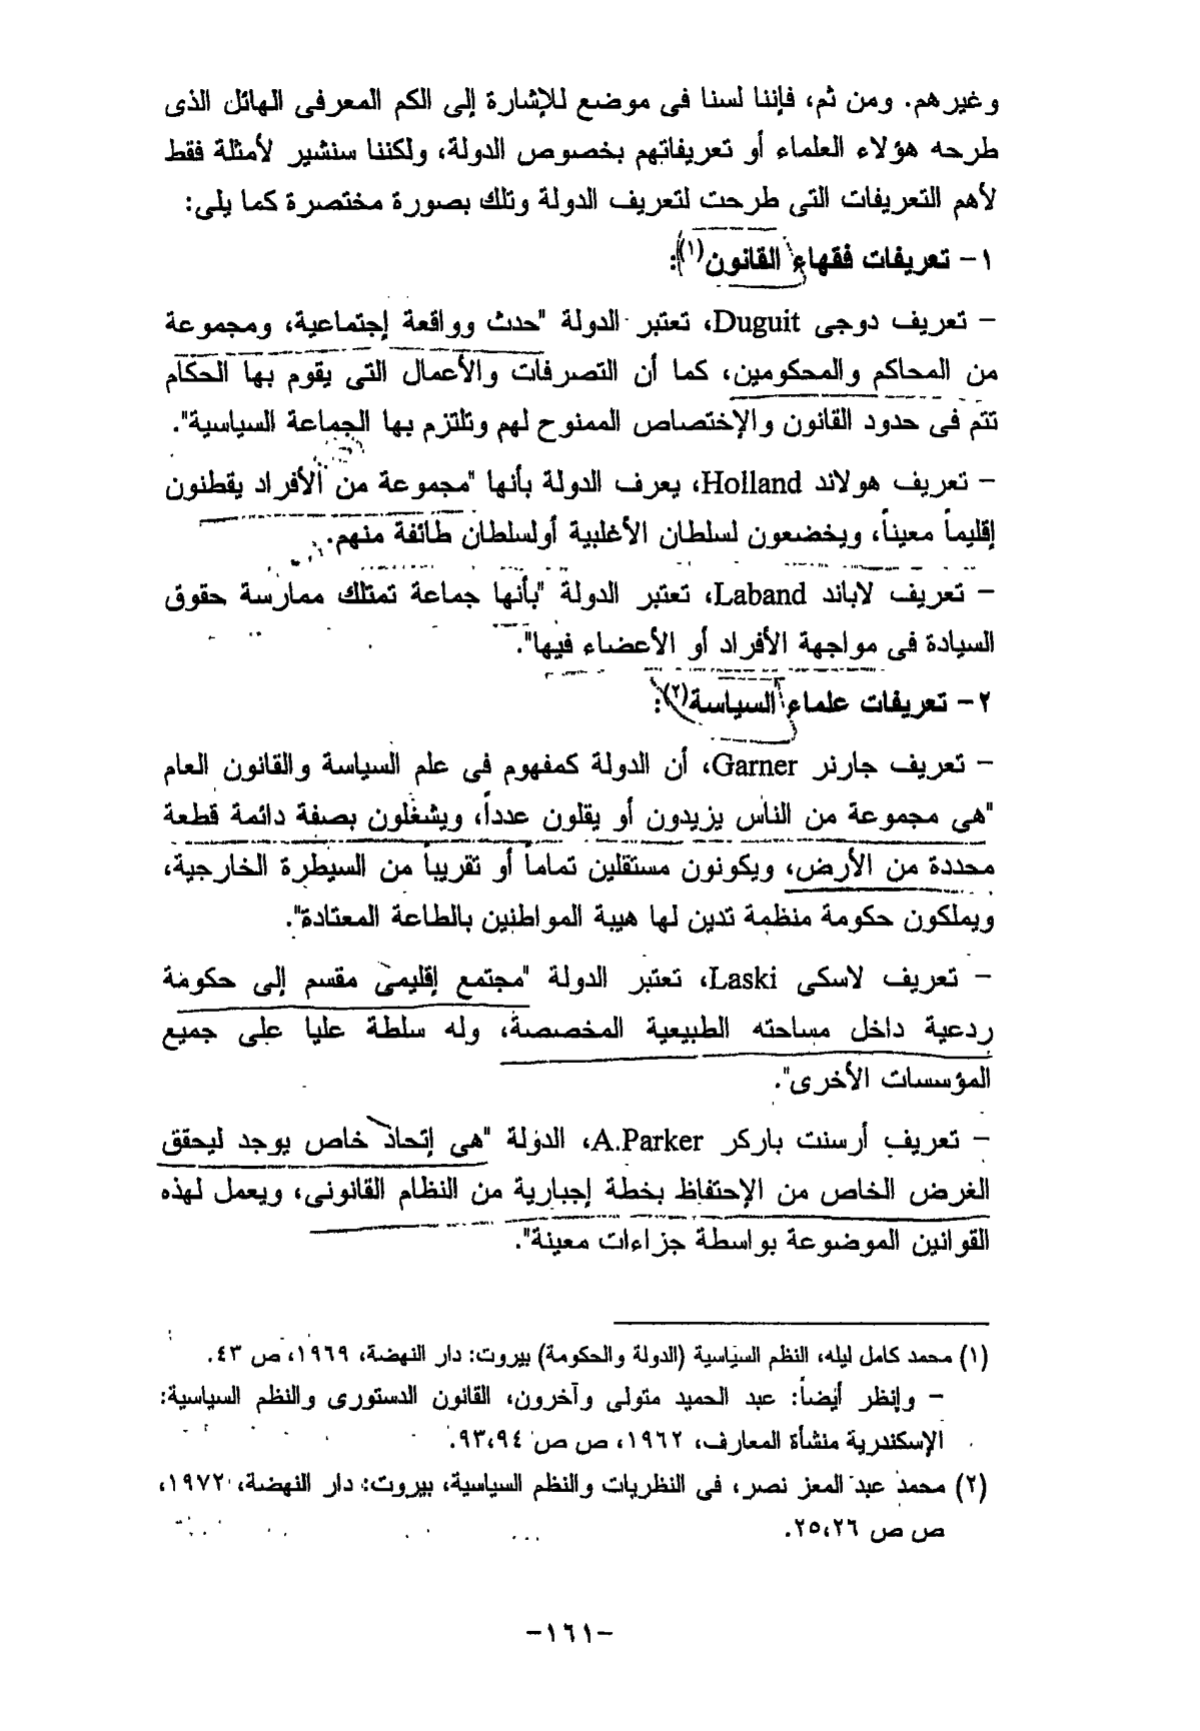 وغيرهم. ومن ثم، فإننا لسنا فى موضع للإشارة إلى الكم المعرفى الهائل الذى
طرحه هؤلاء العلماء أو تعريفاتهم بخصوص الدولة، ولكننا سنشير لأمثلة فقط
لأهم التعريفات التى طرحت لتعريف الدولة وتلك بصورة مختصرة كما يلى:
١- تعريفات فقهاء القانون(١):
- تعريف دوجى Duguit، تعتبر الدولة "حدث وواقعة إجتماعية، ومجموعة
من المحاكم والمحكومين، كما أن التصرفات والأعمال التى يقوم بها الحكام
تتم فى حدود القانون والإختصاص الممنوح لهم وتلتزم بها الجماعة السياسية".
- تعريف هولاند Holland، يعرف الدولة بأنها "مجموعة من الأفراد يقطنون
إقليماً معيناً، ويخضعون لسلطان الأغلبية أولسلطان طائفة منهم.
- تعريف لاباند Laband، تعتبر الدولة "بأنها جماعة تمتلك ممارسة حقوق
السيادة فى مواجهة الأفراد أو الأعضاء فيها".
٢- تعريفات علماء السياسة(٢):
- تعريف جارنر Garner، أن الدولة كمفهوم فى علم السياسة والقانون العام
"هى مجموعة من الناس يزيدون أو يقلون عدداً، ويشغلون بصفة دائمة قطعة
محددة من الأرض، ويكونون مستقلين تماماً أو تقريباً من السيطرة الخارجية،
ويملكون حكومة منظمة تدين لها هيبة المواطنين بالطاعة المعتادة".
- تعريف لاسكى Laski، تعتبر الدولة "مجتمع إقليمى مقسم إلى حكومة
ردعية داخل مساحته الطبيعية المخصصة، وله سلطة عليا على جميع
المؤسسات الأخرى".
- تعريف أرسنت باركر A.Parker، الدولة "هى إتحاد خاص يوجد ليحقق
الغرض الخاص من الإحتفاظ بخطة إجبارية من النظام القانونى، ويعمل لهذه
القوانين الموضوعة بواسطة جزاءات معينة".
(١) محمد كامل ليله، النظم السياسية (الدولة والحكومة) بيروت: دار النهضة، ١٩٦٩، ص ٤٣.
- وإنظر أيضاً: عبد الحميد متولى وآخرون، القانون الدستورى والنظم السياسية:
الإسكندرية منشأة المعارف، ١٩٦٢، ص ص ٩٣،٩٤.
(٢) محمد عبد المعز نصر، فى النظريات والنظم السياسية، بيروت: دار النهضة، ١٩٧٢،
ص ص ٢٥،٢٦.
-١٦١-